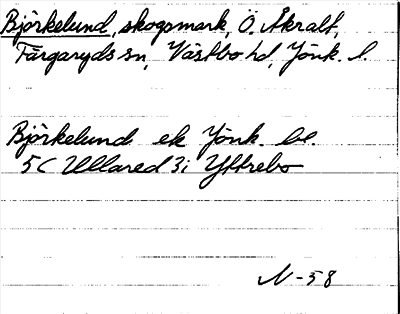 Björkelund, skogsmark, Ö. Åkralt,
Färgaryds sn, Västbo hd, Jönk. l.
Björkelund ek Jönk. bl.
5C Ullared 3i Yttrebo
N-58